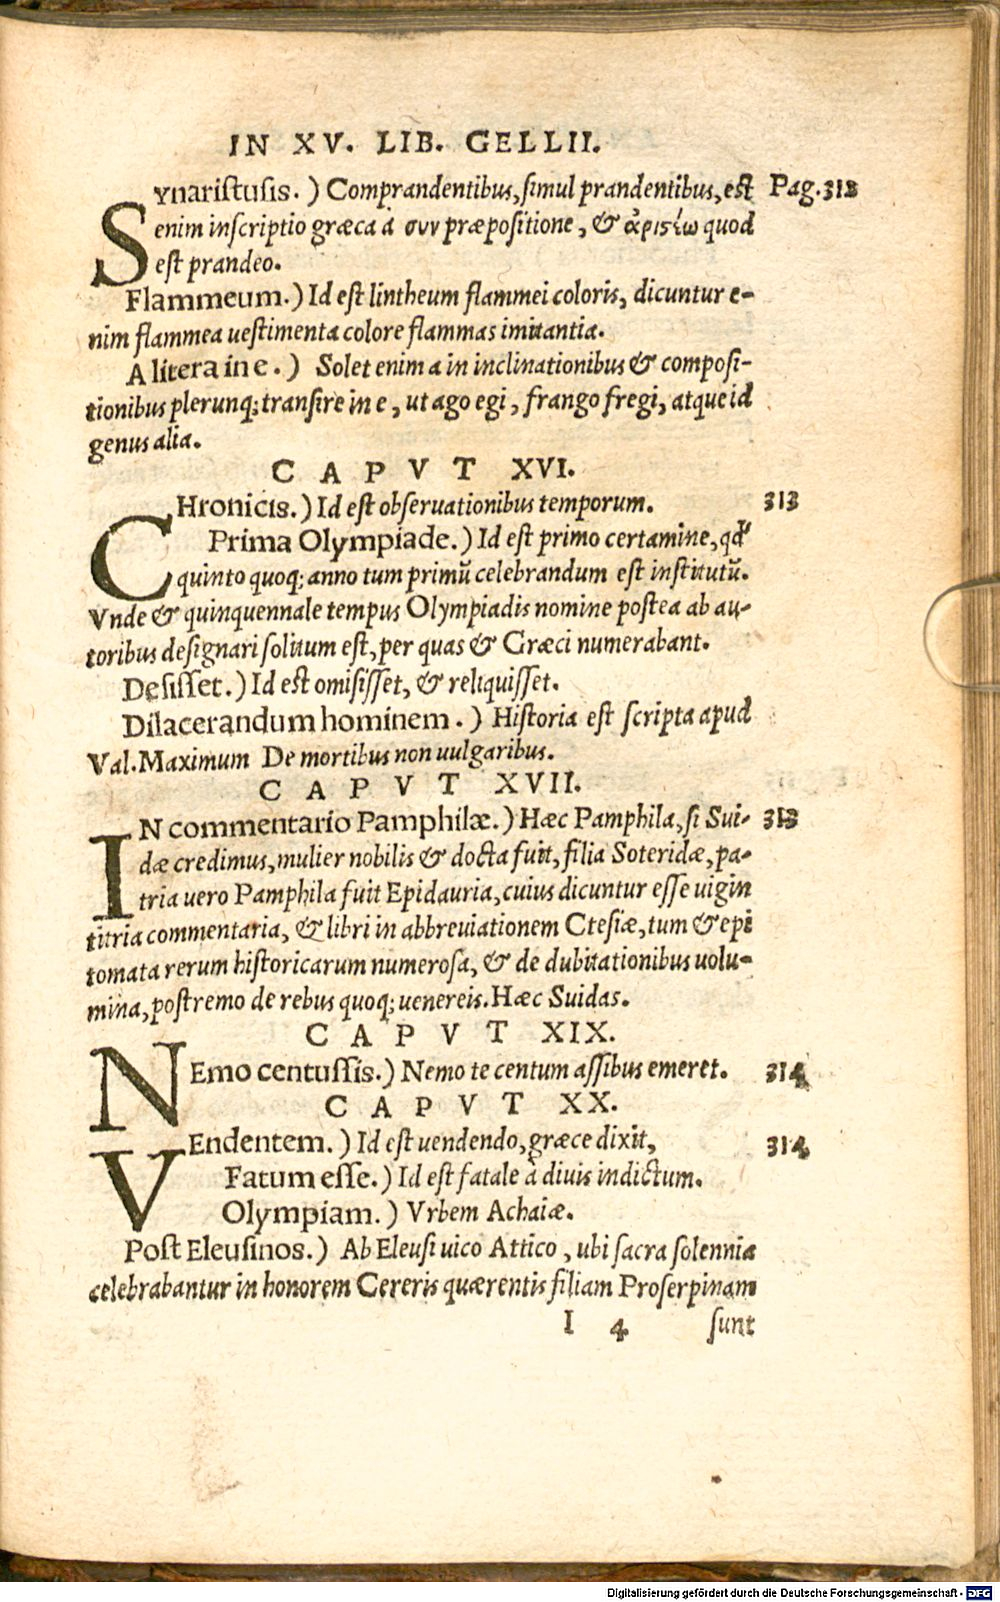 IN XV. LIB. GELLII.
Synaristusis.) Comprandentibus, simul prandentibus, est Pag. 312
enim inscriptio græca à συν præpositione, & ἀριστέω quod
est prandeo.
Flammeum.) Id est lintheum flammei coloris, dicuntur e-
nim flammea uestimenta colore flammas imitantia.
A litera in e.) Solet enim a in inclinationibus & composi-
tionibus plerunq; transire in e, ut ago egi, frango fregi, atque id
genus alia.
CAPVT XVI.
CHronicis.) Id est obseruationibus temporum. 313
Prima Olympiade.) Id est primo certamine, qd'
quinto quoq; anno tum primũ celebrandum est institutũ.
Vnde & quinquennale tempus Olympiadis nomine postea ab au-
toribus designari solitum est, per quas & Græci numerabant.
Desisset.) Id est omisisset, & reliquisset.
Dilacerandum hominem.) Historia est scripta apud
Val. Maximum De mortibus non uulgaribus.
CAPVT XVII.
IN commentario Pamphilæ.) Hæc Pamphila, si Sui- 313
dæ credimus, mulier nobilis & docta fuit, filia Soteridæ, pa-
tria uero Pamphila fuit Epidauria, cuius dicuntur esse uigin
titria commentaria, & libri in abbreuiationem Ctesiæ, tum & epi
tomata rerum historicarum numerosa, & de dubitationibus uolu-
mina, postremo de rebus quoq; uenereis. Hæc Suidas.
CAPVT XIX.
NEmo centussis.) Nemo te centum assibus emeret. 314
CAPVT XX.
VEndentem.) Id est uendendo, græce dixit, 314
Fatum esse.) Id est fatale à diuis indictum.
Olympiam.) Vrbem Achaiæ.
Post Eleusinos.) Ab Eleusi uico Attico, ubi sacra solennia
celebrabantur in honorem Cereris quærentis filiam Proserpinam
I 4 sunt
Digitalisierung gefördert durch die Deutsche Forschungsgemeinschaft - DFG